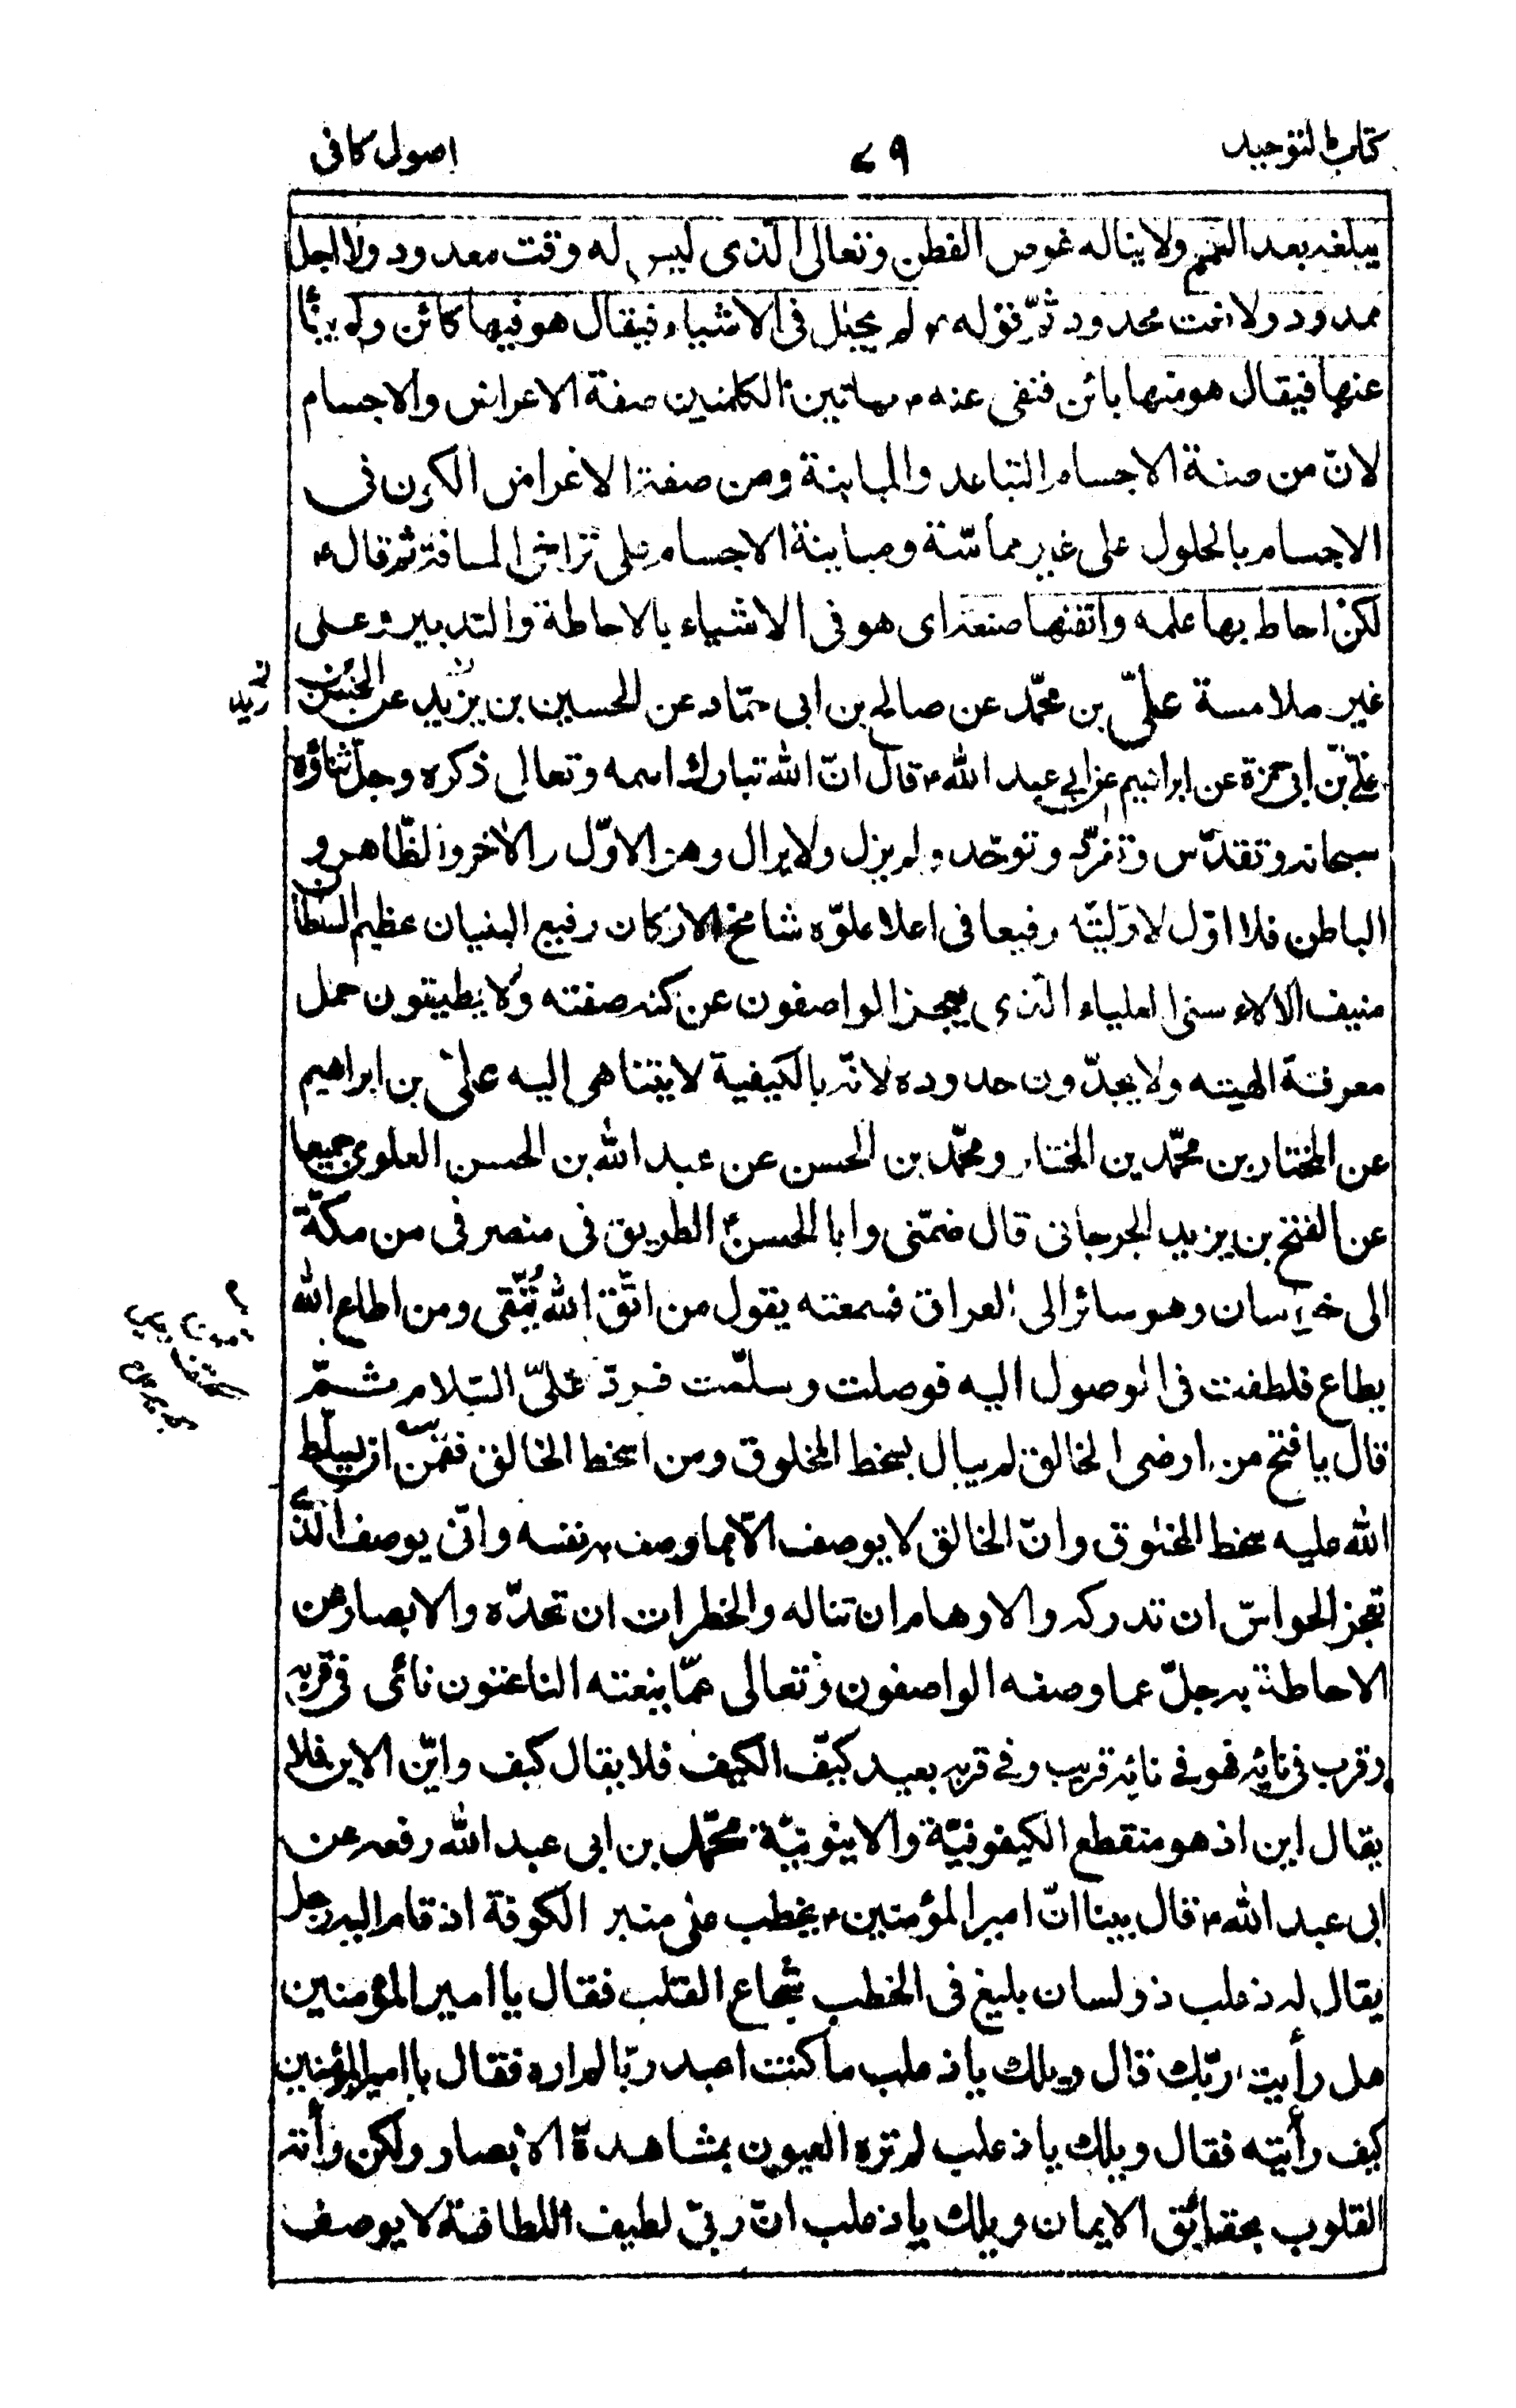 كتاب التوحيد
٧٩
اصول كافى
يبلغه بعد الهمم ولا يناله غوص الفطن وتعالى الّذى ليس له وقت معدود ولا اجل
ممدود ولا نعت محدود ثمّ قوله ع لم يحلل فى الاشياء فيقال هو فيها كائن ولم ينأ
عنها فيقال هو منها بائن فنفى عنه ع بهاتين الكلمتين صفة الاعراض والاجسام
لانّ من صفة الاجسام التباعد والمباينة ومن صفة الاعراض الكون فى
الاجسام بالحلول على غير مماسّة ومباينة الاجسام على تراخى المسافة ثم قال ع
لكن احاط بها علمه واتقنها صنعه اى هو فى الاشياء بالاحاطة والتدبير وعلى
غير ملامسة علىّ بن محمّد عن صالح بن ابى حمّاد عن الحسين بن يزيد عن الحسن بن
علىّ بن ابى حمزة عن ابراهيم عن ابى عبد الله ع قال انّ الله تبارك اسمه وتعالى ذكره وجلّ ثناؤه
سبحانه وتقدّس وتفرّد وتوحّد ولم يزل ولا يزال وهو الاوّل والاخر والظّاهر و
الباطن فلا اوّل لاوّليّته رفيعا فى اعلا علوّه شامخ الاركان رفيع البنيان عظيم السّلطان
منيف الالاء سنى العلياء الّذى يعجز الواصفون عن كنه صفته ولا يطيقون حمل
معرفة الهيته ولا يحدّون حدوده لانّه بالكيفية لا يتناهى اليه علىّ بن ابراهيم
عن المختار بن محمّد بن المختار ومحمّد بن الحسن عن عبد الله بن الحسن العلوى جميعا
عن الفتح بن يزيد الجرجانى قال ضمّنى وابا الحسن ع الطريق فى منصرفى من مكّة
الى خراسان وهو سائر الى العراق فسمعته يقول من اتّقى الله يُتّقى ومن اطاع الله
يطاع فلطفت فى الوصول اليه فوصلت وسلّمت فردّ علىّ السّلام ثمّ
قال يا فتح من ارضى الخالق لم يبال بسخط المخلوق ومن اسخط الخالق فقمن ان يسلّط
الله عليه سخط المخلوق وانّ الخالق لا يوصف الّا بما وصف به نفسه وانّى يوصف الّذى
تعجز الحواسّ ان تدركه والاوهام ان تناله والخطرات ان تحدّه والابصار عن
الاحاطة به جلّ عما وصفه الواصفون وتعالى عمّا ينعته الناعتون نأى فى قربه
وقرب فى نأيه فهو فى نأيه قريب وفى قربه بعيد كيّف الكيف فلا يقال كيف واين الاين فلا
يقال اين اذ هو منقطع الكيفوفيّة والاينونيّة محمّد بن ابى عبد الله رفعه عن
ابى عبد الله ع قال بينا انّ امير المؤمنين ع يخطب على منبر الكوفة اذ قام اليه رجل
يقال له ذعلب ذو لسان بليغ فى الخطب شجاع القلب فقال يا امير المؤمنين
هل رأيت ربّك قال ويلك يا ذعلب ما كنت اعبد ربّا لم اره فقال يا امير المؤمنين
كيف رأيته فقال ويلك يا ذعلب لم تره العيون بمشاهدة الابصار ولكن رأته
القلوب بحقائق الايمان ويلك يا ذعلب انّ ربّى لطيف اللطافة لا يوصف